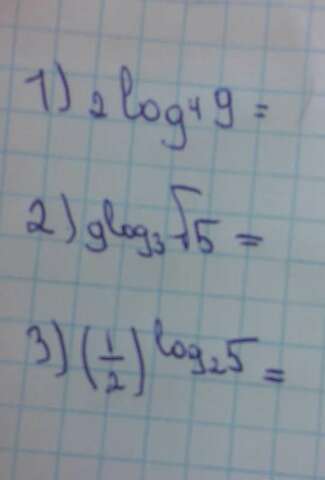 1) 2 log⁴ 9 =
2) 9log₃√5 =
3) (1/2)^log₂5 =